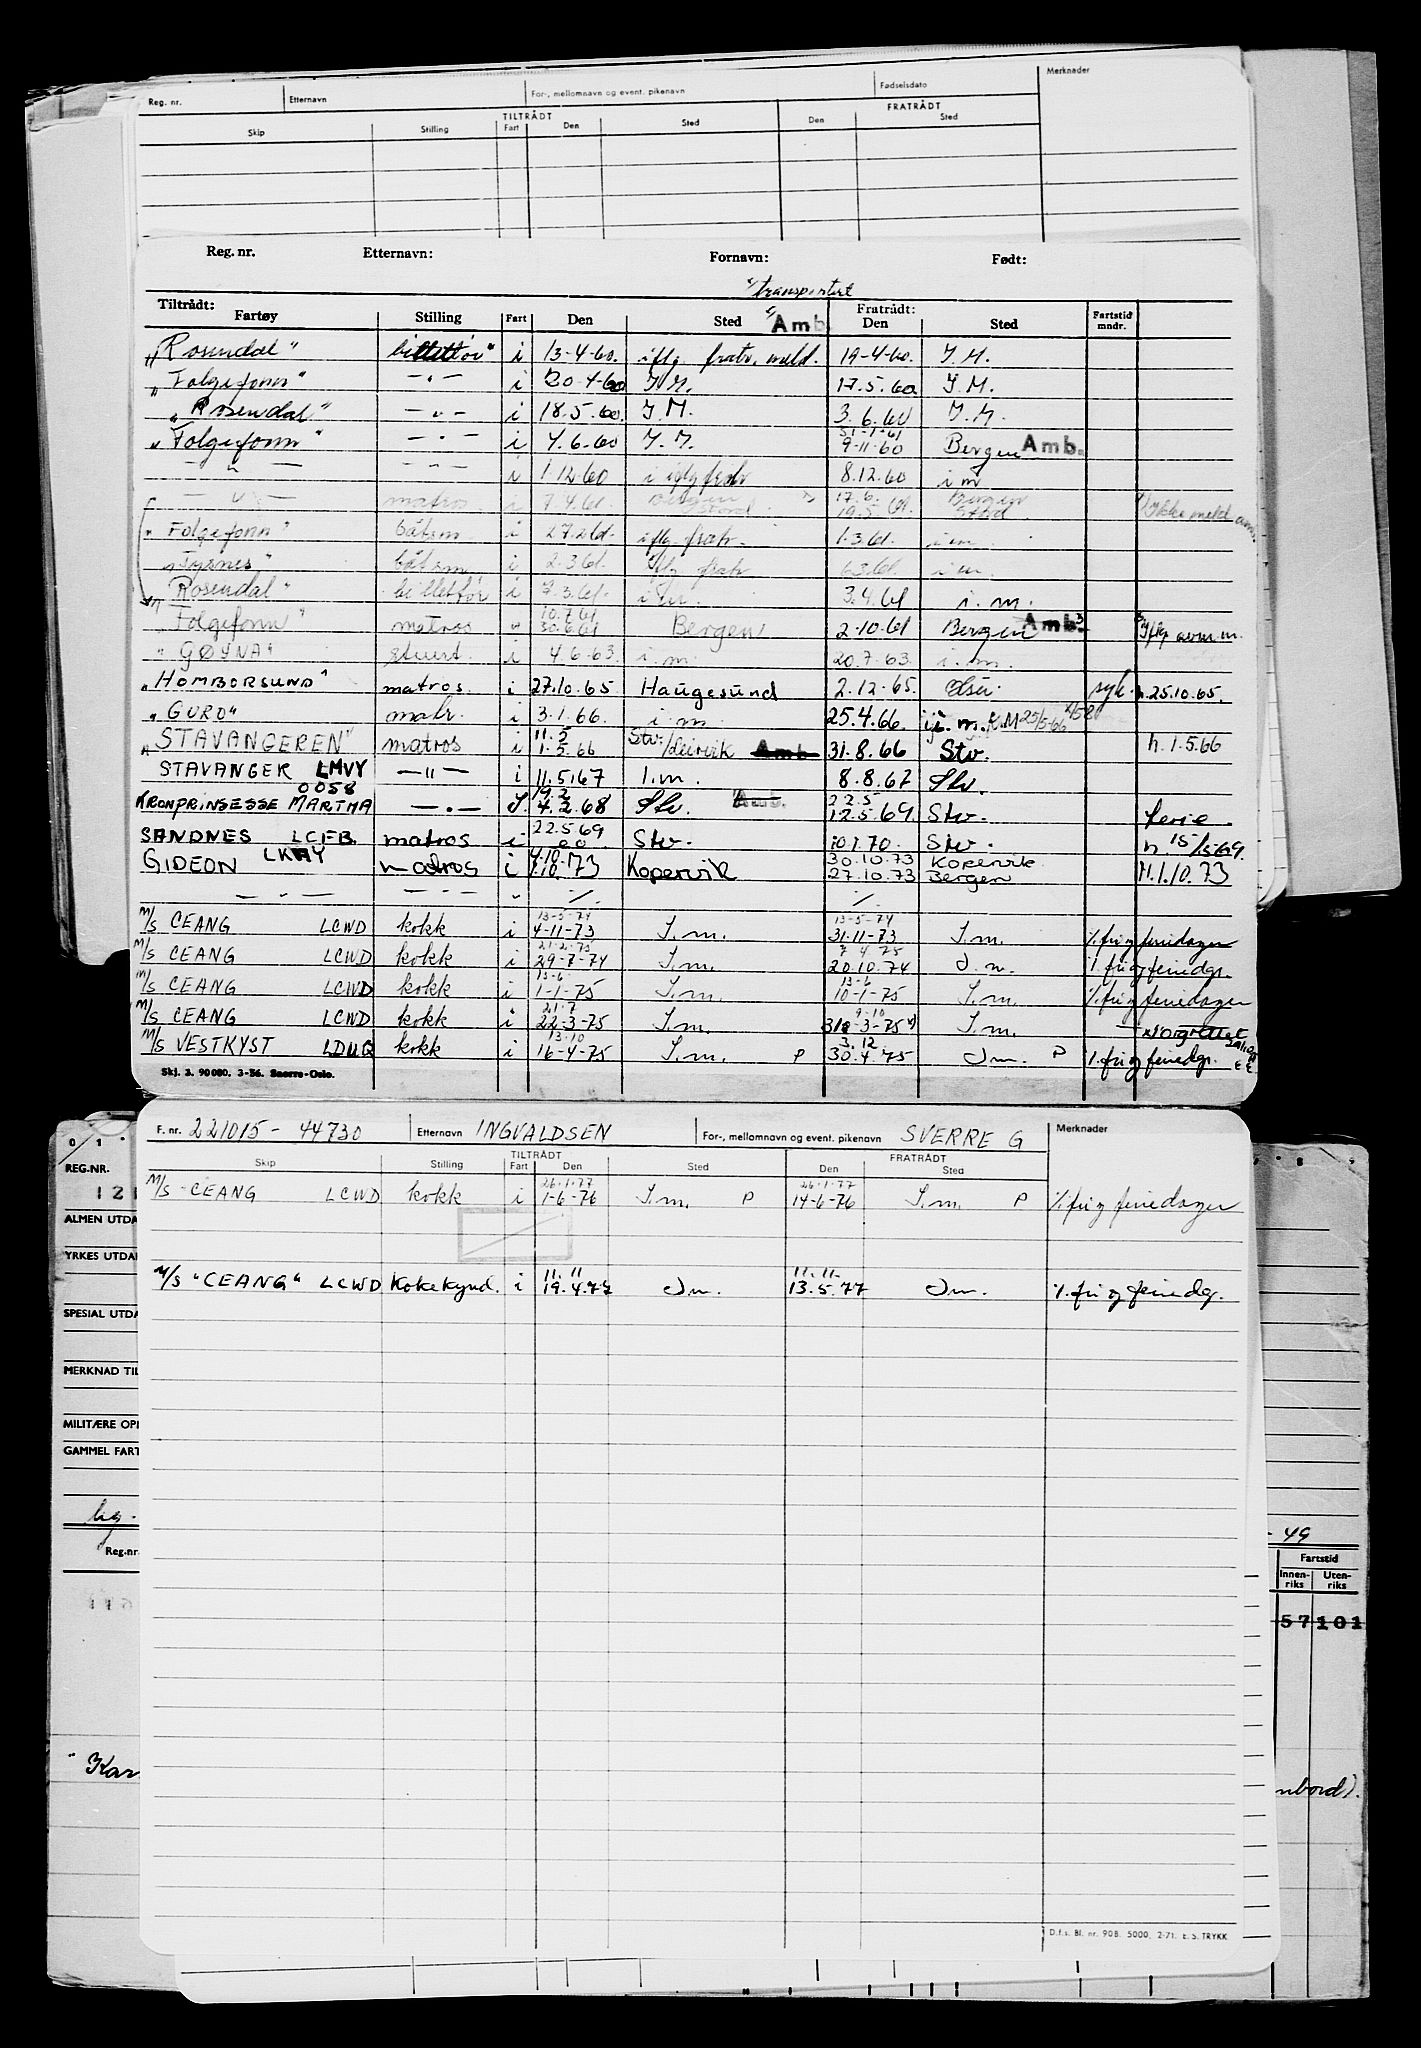 Reg. nr. Etternavn For-, mellomnavn og event. pikenavn Fødselsdato Merknader
TILTRÅDT FRATRÅDT
Skip Stilling Fart Den Sted Den Sted
Reg. nr. Etternavn: Fornavn: Født:
Tiltrådt: Fratrådt:
Fartøy Stilling Fart Den Sted Amb. Den Sted Fartstid mndr.
"Rosendal" i 13-4-60. iflg. fratr. meld. 19-4-60. I.M.
"Folgefonn" — " — i 20-4-60 I.M. 17.5.60 I.M.
"Rosendal" — " — i 18.5.60. I.M. 3.6.60 I.M.
"Folgefonn" — " — i 4.6.60 I.M. 9-11-60 Bergen Amb.
— " — — " — i 1.12.60 i iflg fratr 8.12.60 i m
— " — matros i 7.4.61. Bergen Stord 17.6. 19.5.61. Bergen Stord Ikke meld
"Folgefonn" båtsm i iflg. fratr. 1.3.61. i m.
"Tysnes" båtsm i 2.3.61. iflg fratr i m.
"Rosendal" billettør i 7.3.61. i m. 3.4.61 i.m.
"Folgefonn" matros " 10.7.61 30.6.61 Bergen 2.10.61 Bergen Amb.
"GØYNA" stuert i 4.6.63. i.m. 20.7.63. i.m.
"HOMBORSUND" matros. i 27.10.65 Haugesund 2.12.65. syk. h.25.10.65.
"GURO" matr. i 3.1.66. i.m. 25.4.66.
"STAVANGEREN" matros i 11.5 1.5.66 Stv./Leirvik Amb 31.8.66 Stv. h.1.5.66
STAVANGER LMVY — " — i 11.5.67 I.m. 8.8.67 Stv.
0058
KRONPRINSESSE MARTHA — " — 19.2 4.2.68 Stv. Amb. 22.5 12.5.69. Stv. ferie.
SANDNES LCFB. matros i 22.5.69 Stv. 10.1.70. Stv. h 15/5-69.
GIDEON matros i 1.10.73 Kopervik 30.10.73 27.10.73 Kopervik Bergen H.1.10.73
— " — " — — " — " ./. ./.
M/S CEANG LCWD kokk i 13-5-74 4-11-73 I.m. 13-5-74 31-11-73 I.m. ./. fri og feriedager
M/S CEANG LCWD kokk i 21-2-75 29-7-74 I.m. 7 4.75 20.10.74 I.m. ./. fri og feriedgr.
M/S CEANG LCWD kokk i 13-6- 1-1-75 I.m. 13-6 10-1-75 I.m. ./. fri og feriedager
M/S CEANG LCWD kokk i 21-7 22-3-75 I.m. 9-10 31-3-75 I.m.
M/S VESTKYST LDUQ kokk i 13-10 16-4-75 I.m. P 3.12. 30.4.75 I.m. P ./. fri og feriedgr.
Skj. 3. 90 000. 3-56. Snorre-Oslo.
F. nr. 221015-44730 Etternavn INGVALDSEN For-, mellomnavn og event. pikenavn SVERRE G Merknader
TILTRÅDT FRATRÅDT
Skip Stilling Fart Den Sted Den Sted
M/S CEANG LCWD kokk i 26-1-77 1-6-76 I.m. P 26-1-77 14-6-76 I.m. P ./. fri og feriedager
M/S "CEANG" LCWD Kokekynd. i 11.11 19.4.77 I.m. 11.11. 13.5.77 I.m. ./. fri og feriedg.
D.f.s. Bl. nr. 90B. 5000. 2-71. E.S. TRYKK
REG.NR.
121
ALMEN UTDA
YRKES UTDA
SPESIAL UTDA
MERKNAD TIL
MILITÆRE OP
GAMMEL FART
Reg.nr.
- 49
Fartstid
Innen-riks Uten-riks
57 101
Kar
nbord).